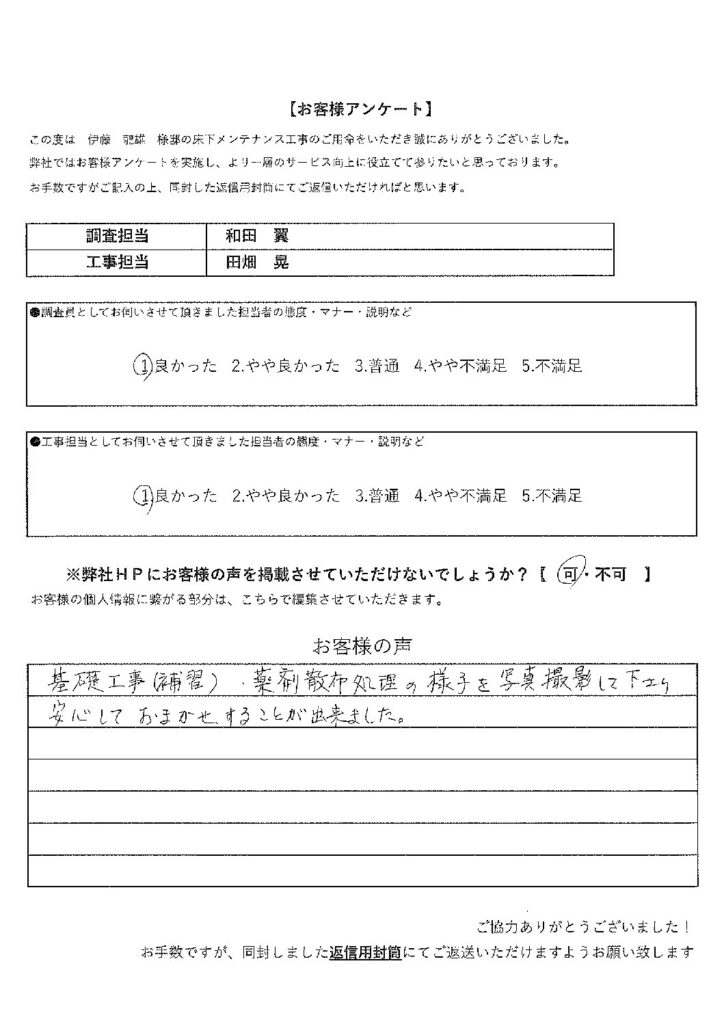 【お客様アンケート】
この度は　伊藤　龍雄　様邸の床下メンテナンス工事のご用命をいただき誠にありがとうございました。
弊社ではお客様アンケートを実施し、より一層のサービス向上に役立てて参りたいと思っております。
お手数ですがご記入の上、同封した返信用封筒にてご返信いただければと思います。
調査担当　和田　翼
工事担当　田畑　晃
●調査員としてお伺いさせて頂きました担当者の態度・マナー・説明など
1.良かった　2.やや良かった　3.普通　4.やや不満足　5.不満足
●工事担当としてお伺いさせて頂きました担当者の態度・マナー・説明など
1.良かった　2.やや良かった　3.普通　4.やや不満足　5.不満足
※弊社ＨＰにお客様の声を掲載させていただけないでしょうか？【　可・不可　】
お客様の個人情報に繋がる部分は、こちらで編集させていただきます。
お客様の声
基礎工事(補習)・薬剤散布処理の様子を写真撮影して下さり
安心しておまかせすることが出来ました。
ご協力ありがとうございました！
お手数ですが、同封しました返信用封筒にてご返送いただけますようお願い致します